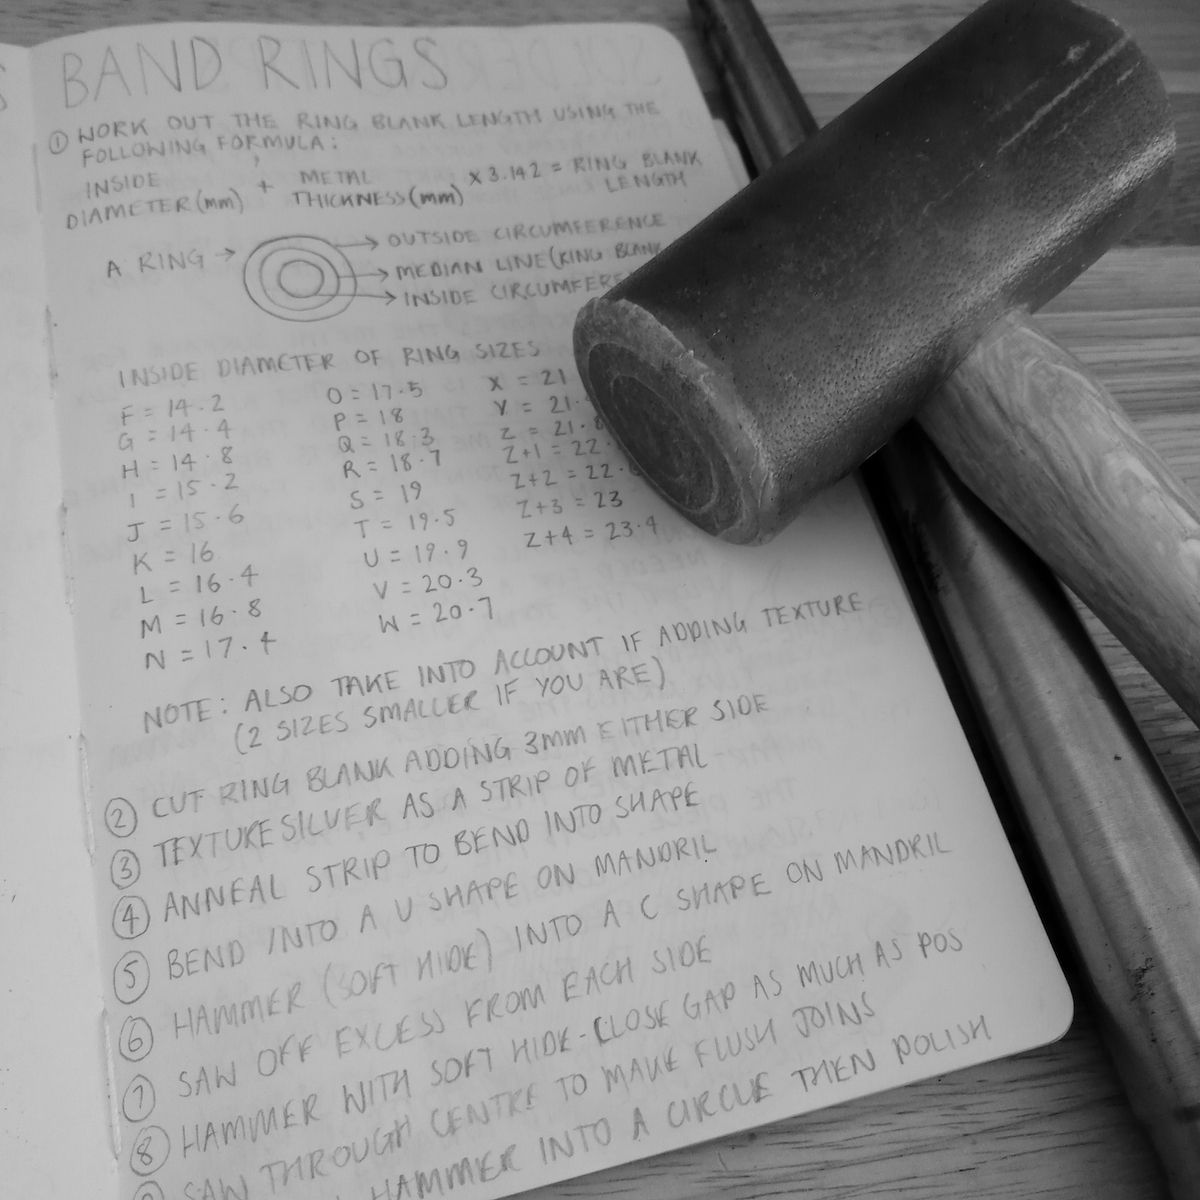 BAND RINGS
① WORK OUT THE RING BLANK LENGTH USING THE
FOLLOWING FORMULA:
INSIDE DIAMETER (mm) + METAL THICKNESS (mm) X 3.142 = RING BLANK LENGTH
A RING → → OUTSIDE CIRCUMFERENCE
→ MEDIAN LINE (RING BLANK
→ INSIDE CIRCUMFERE
INSIDE DIAMETER OF RING SIZES
F = 14.2
G = 14.4
H = 14.8
I = 15.2
J = 15.6
K = 16
L = 16.4
M = 16.8
N = 17.4
O = 17.5
P = 18
Q = 18.3
R = 18.7
S = 19
T = 19.5
U = 19.9
V = 20.3
W = 20.7
X = 21
Y = 21.
Z = 21.8
Z+1 = 22.
Z+2 = 22.
Z+3 = 23
Z+4 = 23.4
NOTE: ALSO TAKE INTO ACCOUNT IF ADDING TEXTURE
(2 SIZES SMALLER IF YOU ARE)
② CUT RING BLANK ADDING 3mm EITHER SIDE
③ TEXTURE SILVER AS A STRIP OF METAL -
④ ANNEAL STRIP TO BEND INTO SHAPE
⑤ BEND INTO A U SHAPE ON MANDRIL
⑥ HAMMER (SOFT HIDE) INTO A C SHAPE ON MANDRIL
⑦ SAW OFF EXCESS FROM EACH SIDE
⑧ HAMMER WITH SOFT HIDE - CLOSE GAP AS MUCH AS POS
SAW THROUGH CENTRE TO MAKE FLUSH JOINS
HAMMER INTO A CIRCLE THEN POLISH